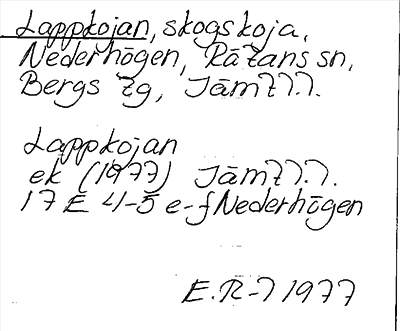 Lappkojan, skogskoja,
Nederhögen, Rätans sn,
Bergs tg, Jämtl.
Lappkojan
ek (1977) Jämtl.
17 E 4-5 e-f Nederhögen
E.R-l 1977